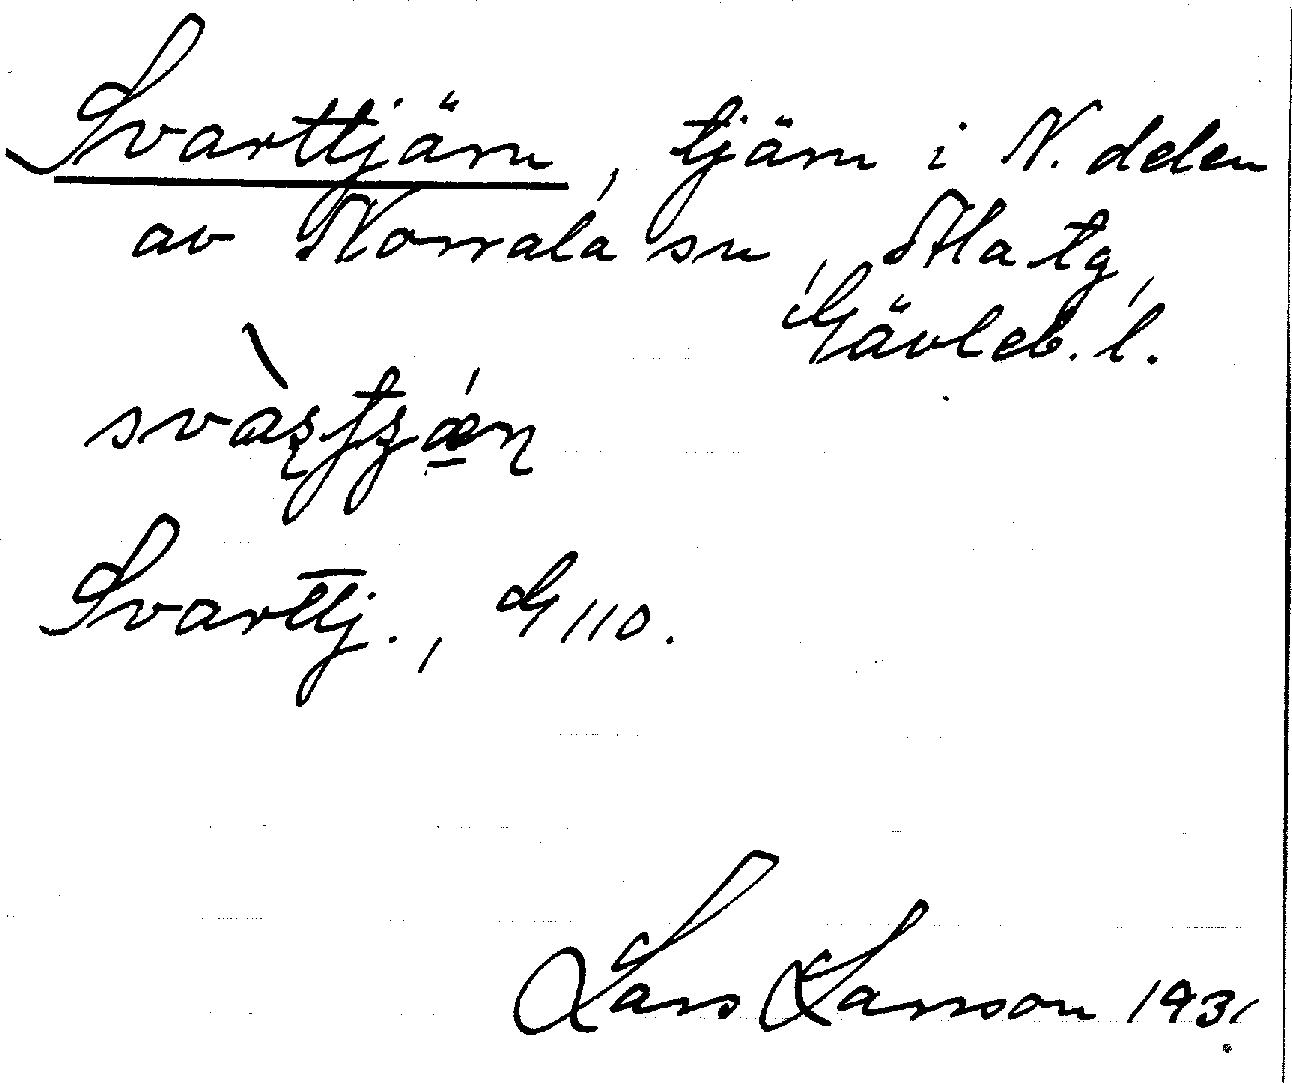 Svarttjärn, tjärn i N. delen
av Norrala sn, Ala tg,
Gävleb. l.
Svarttj., G 110.
Lars Larsson 1931